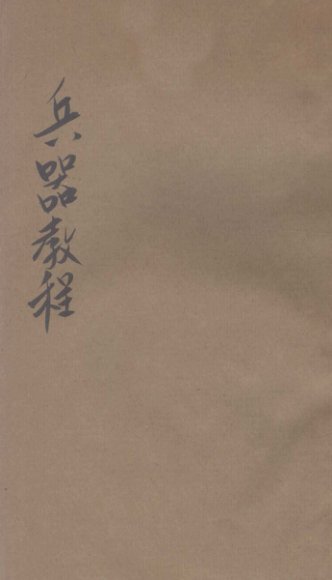 兵器教程